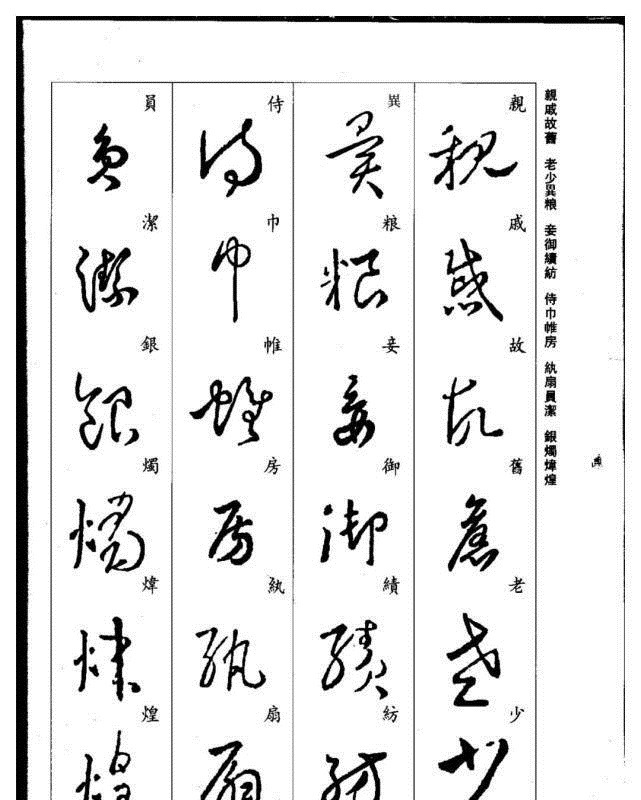 親戚故舊　老少異粮　妾御績紡　侍巾帷房　紈扇員潔　銀燭煒煌
親戚故舊老少
異粮妾御績紡
侍巾帷房紈扇
員潔銀燭煒煌